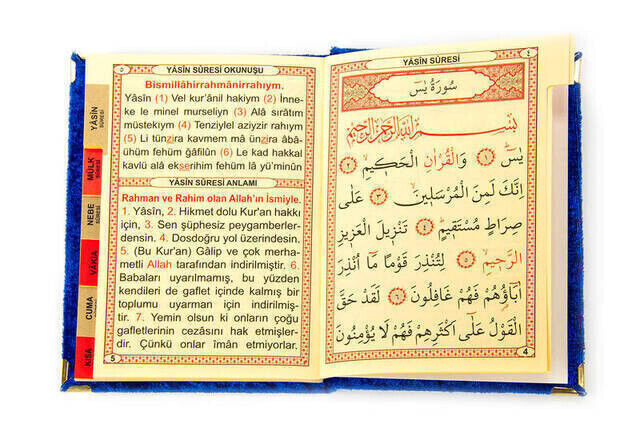 ٥
YÂSİN SÛRESİ OKUNUŞU
Bismillâhirrahmânirrahıym.
Yâsîn (1) Vel kur'ânil hakiym (2) İnne-
ke le minel murseliyn (3) Alâ sırâtım
müstekıym (4) Tenziylel aziyzir rahıym
(5) Li tünzira kavmem mâ ünzira âbâ-
ühüm fehüm ğâfilûn (6) Le kad hakkal
kavlü alâ ekserihim fehüm lâ yü'minûn
YÂSÎN SÛRESİ ANLAMI
Rahman ve Rahim olan Allah'ın İsmiyle.
1. Yâsîn, 2. Hikmet dolu Kur'an hakkı
için, 3. Sen şüphesiz peygamberler-
densin. 4. Dosdoğru yol üzerindesin.
5. (Bu Kur'an) Gâlip ve çok merha-
metli Allah tarafından indirilmiştir. 6.
Babaları uyarılmamış, bu yüzden
kendileri de gaflet içinde kalmış bir
toplumu uyarman için indirilmiş-
tir. 7. Yemin olsun ki onların çoğu
gafletlerinin cezasını hak etmişler-
dir. Çünkü onlar îmân etmiyorlar.
5
YÂSÎN SÛRESİ
MÜLK SÛRESİ
NEBE SÛRESİ
VÂKIA
CUMA
KISA
YÂSÎN SÛRESİ
٤
سُورَةُ يٰسٓ
بِسْمِ اللّٰهِ الرَّحْمٰنِ الرَّحِيمِ
يٰسٓ ﴿١﴾ وَالْقُرْاٰنِ الْحَكِيمِ ﴿٢﴾
اِنَّكَ لَمِنَ الْمُرْسَلِينَ ﴿٣﴾ عَلٰى
صِرَاطٍ مُسْتَقِيمٍ ﴿٤﴾ تَنْزِيلَ الْعَزِيزِ
الرَّحِيمِ ﴿٥﴾ لِتُنْذِرَ قَوْمًا مَٓا اُنْذِرَ
اٰبَٓاؤُ۬هُمْ فَهُمْ غَافِلُونَ ﴿٦﴾ لَقَدْ حَقَّ
الْقَوْلُ عَلٰٓى اَكْثَرِهِمْ فَهُمْ لَا يُؤْمِنُونَ
4